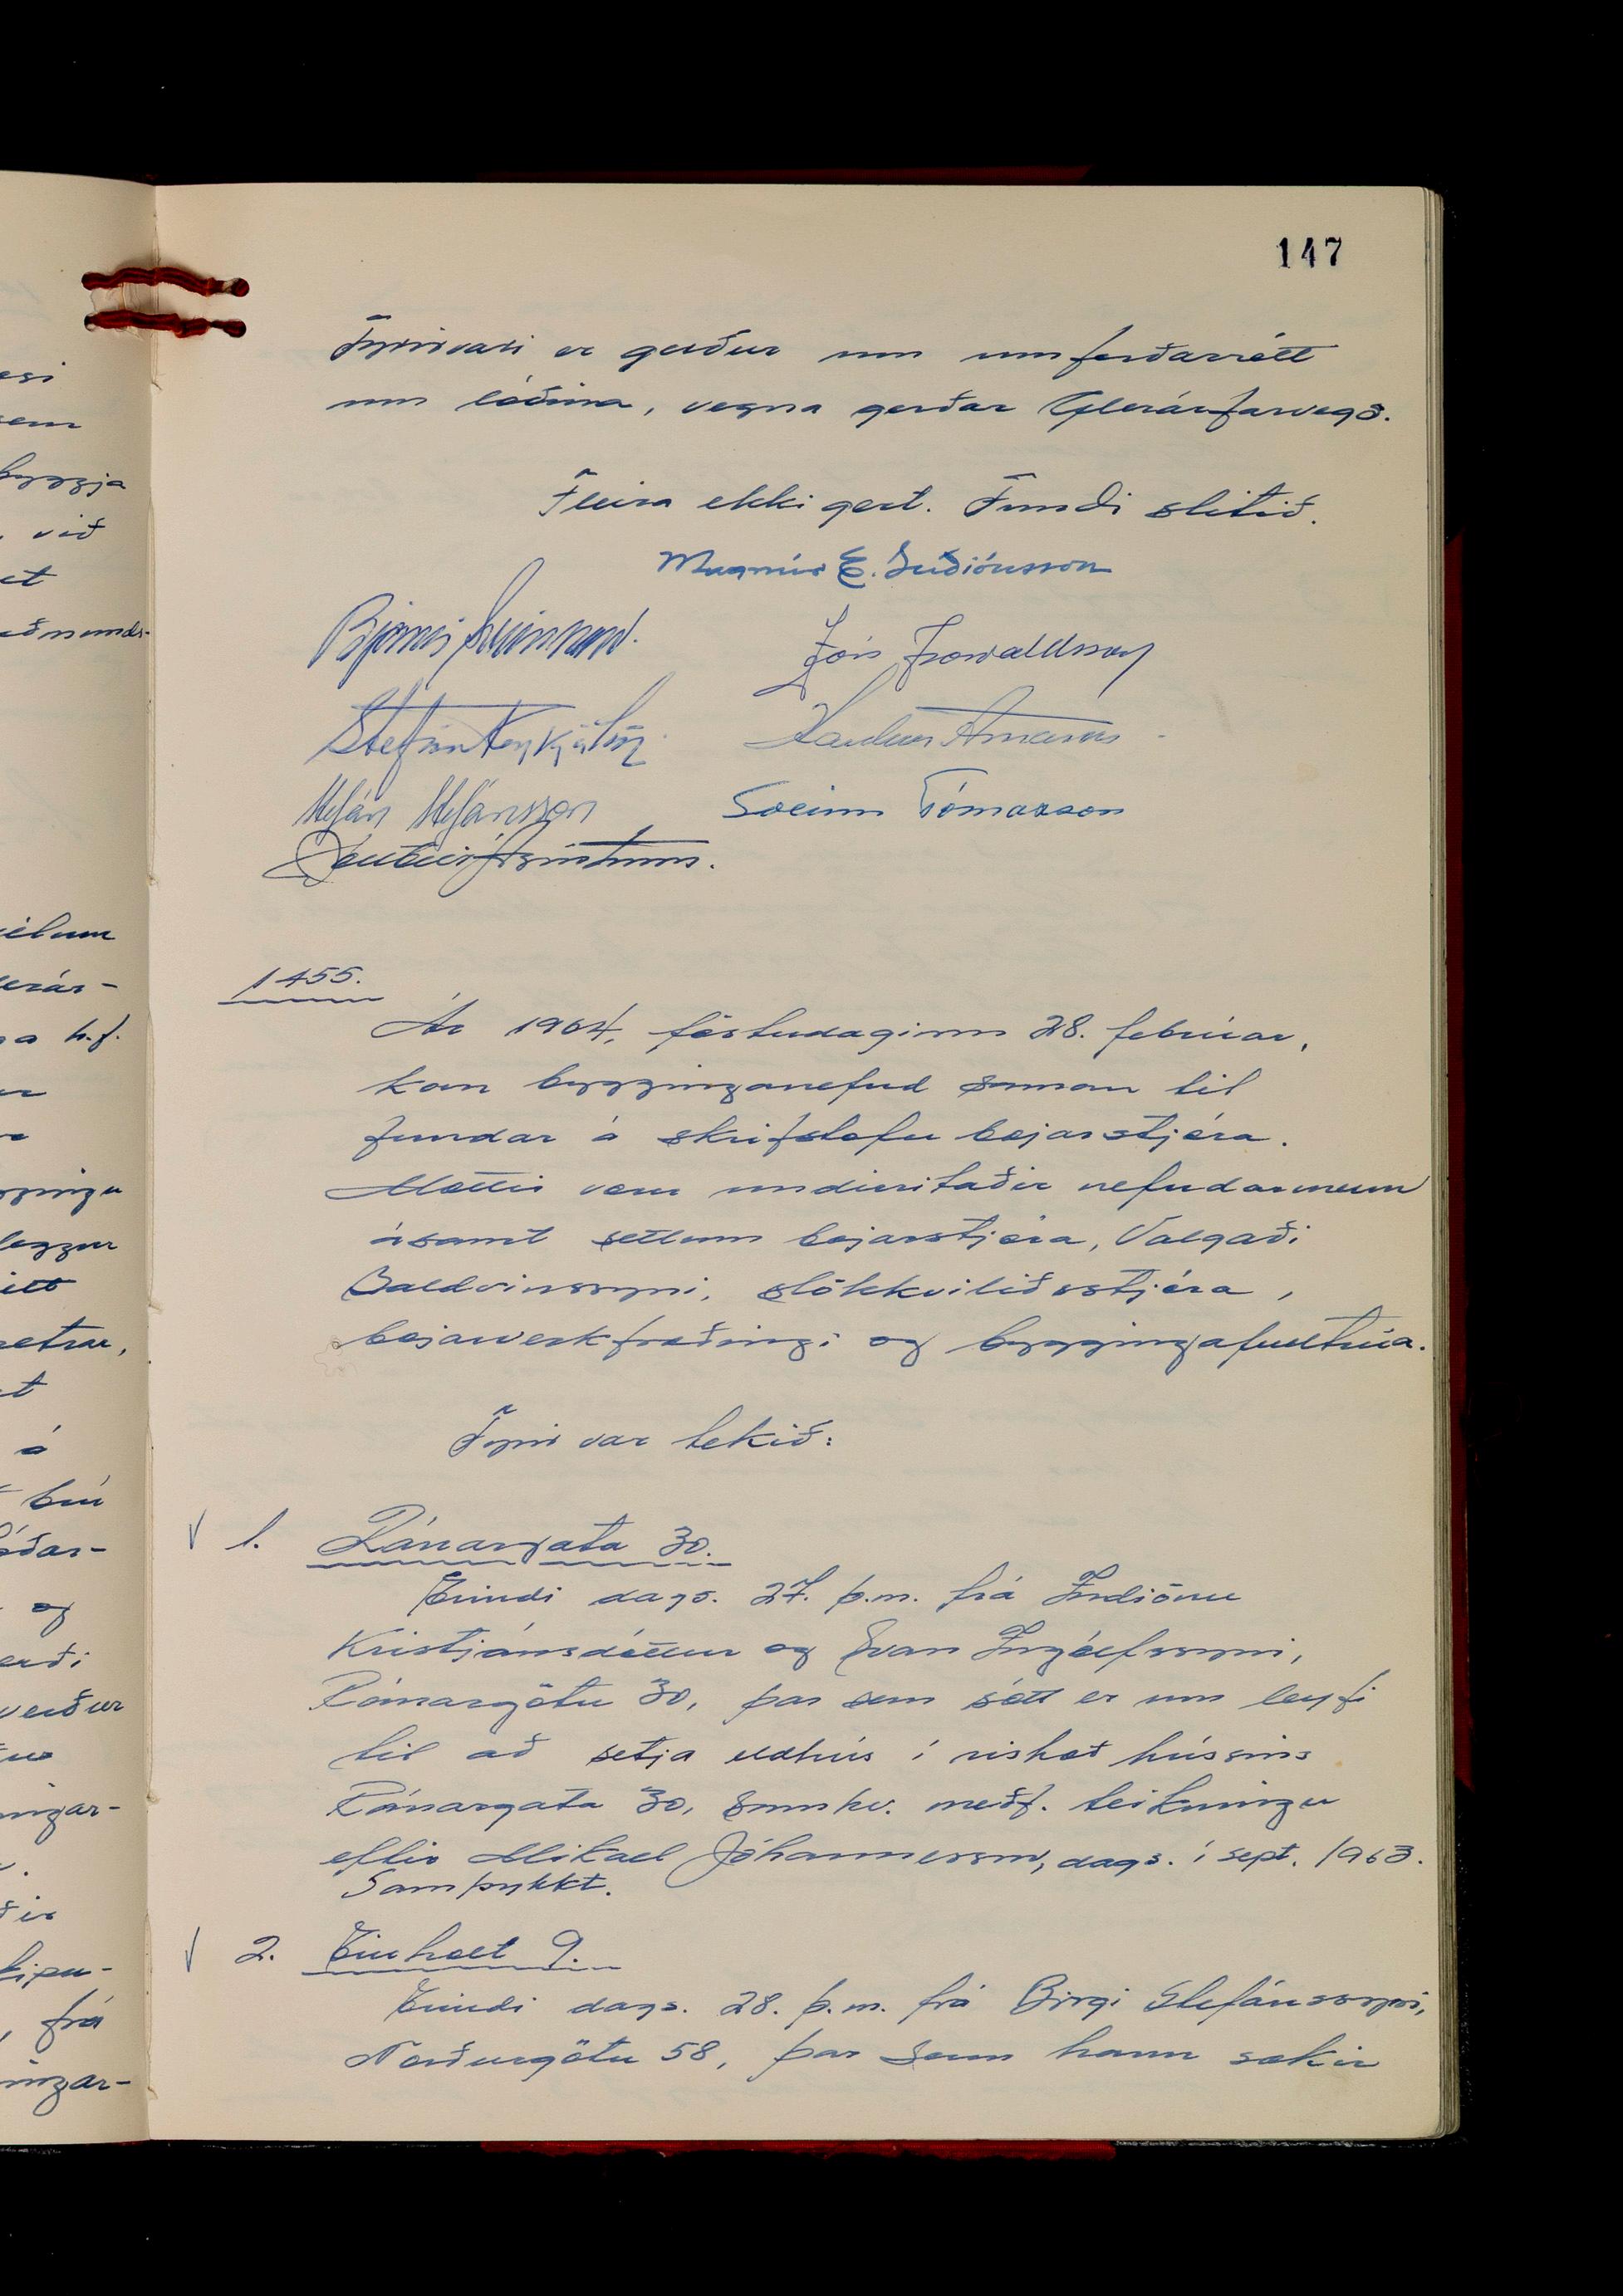 147
Fyrirvari er gerður um umferðarrétt
um lóðina, vegna gerðar Glerárfarvegs.
Fleira ekki gert. Fundi slitið.
Magnús E. Guðjónsson
Bjarni
Jón Þorvaldsson
Stefán Reykjalín
Haukur Árnason
Stefán Stefánsson
Sveinn Tómasson
1455.
Ár 1964, föstudaginn 28. febrúar,
kom bygginganefnd saman til
fundar á skrifstofu bæjarstjóra.
Mættir voru undirritaðir nefndarmenn
ásamt settum bæjarstjóra, Valgarði
Baldvinssyni, slökkviliðsstjóra,
bæjarverkfræðingi og byggingafulltrúa.
Fyrir var tekið:
1. Ránargata 30.
Erindi dags. 27. þ.m. frá Indíönu
Kristjánsdóttur og Ivan Ingólfssyni,
Ránargötu 30, þar sem sótt er um leyfi
til að setja eldhús í rishæð hússins
Ránargata 30, smnkv. meðf. teikningu
eftir Mikael Jóhannesson, dags. í sept. 1963.
Samþykkt.
2. Einholt 9.
Erindi dags. 28. þ.m. frá Birgi Stefánssyni,
Norðurgötu 58, þar sem hann sækir